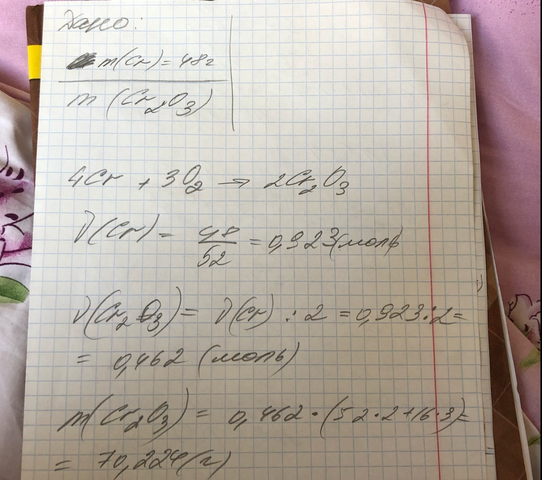 Дано:
m(Cr) = 48г
m (Cr2O3)
4Cr + 3O2 → 2Cr2O3
ν(Cr) = 48/52 = 0,923(моль
ν(Cr2O3) = ν(Cr) : 2 = 0,923:2=
= 0,462 (моль)
m(Cr2O3) = 0,462·(52·2+16·3)=
= 70,224(г)